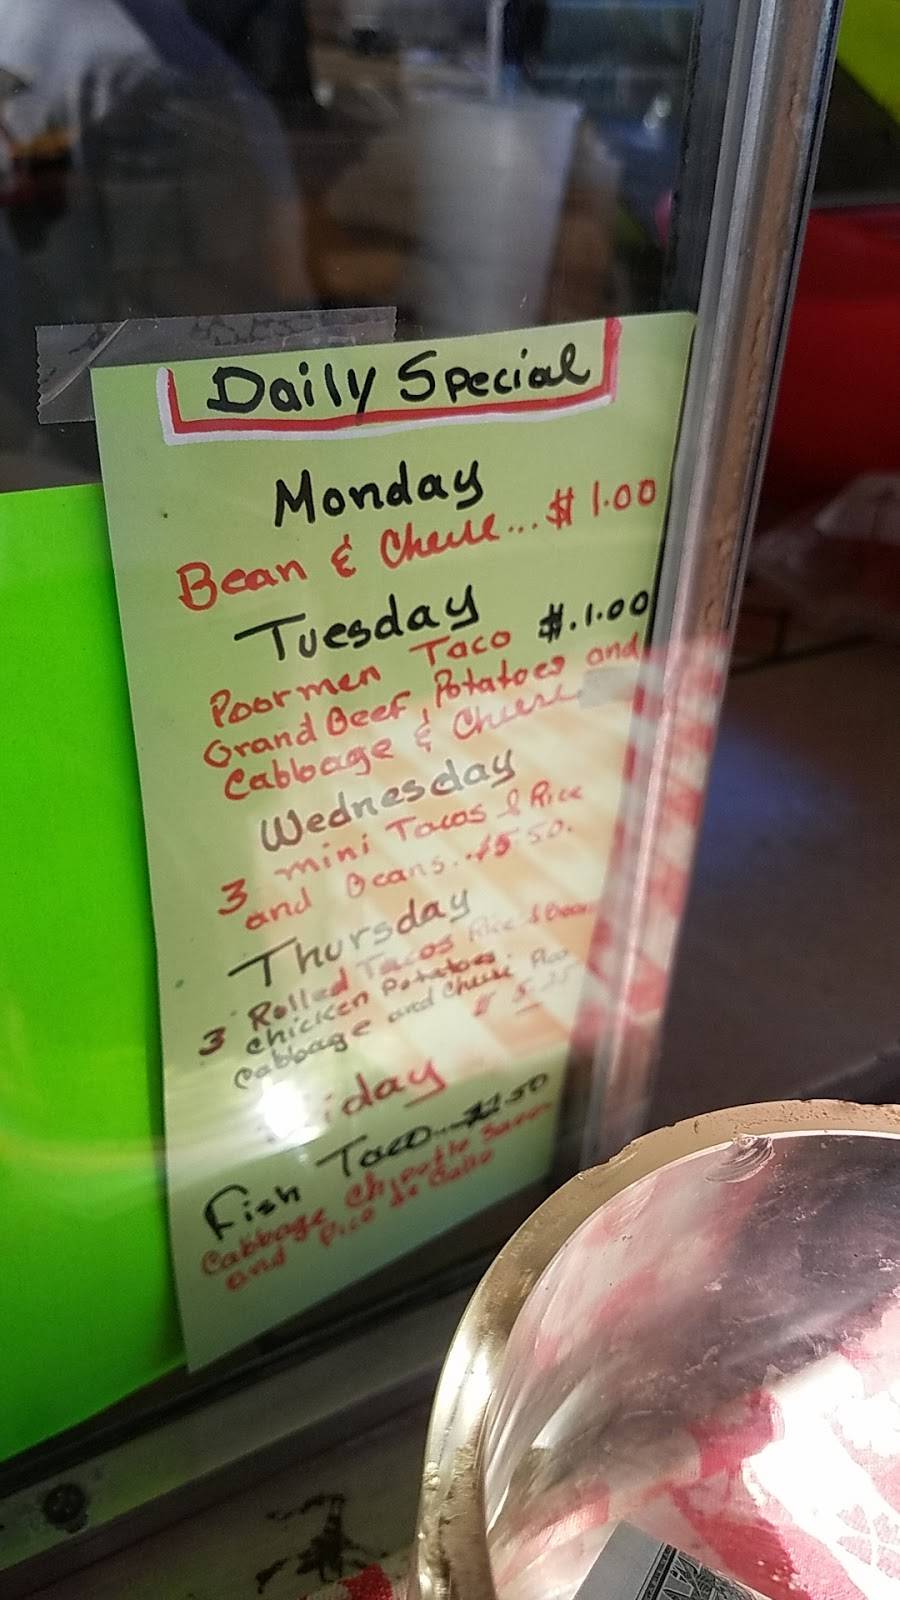 Daily Special
Monday
Bean & Cheese... $1.00
Tuesday
Poormen Taco $.1.00
Grand Beef, Potatoes and
Cabbage & Cheese
Wednesday
3 mini Tacos & Rice
and Beans..$5.50.
Thursday
3 Rolled Tacos Rice & Beans
chicken Potatoes.
Cabbage and Cheese Pico
$ 5.25
iday
Fish Taco...$2.50
Cabbage Chipotle
and Pico de Gallo